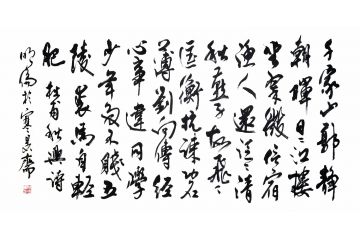 千家山郭靜
朝暉日々江樓
坐翠微信宿
漁人還泛々清
秋燕子故飛々
匡衡抗疏功名
薄劉向傳經
心事違同學
少年多不賤五
陵裘馬自輕
肥 杜甫秋興詩
於寒齋